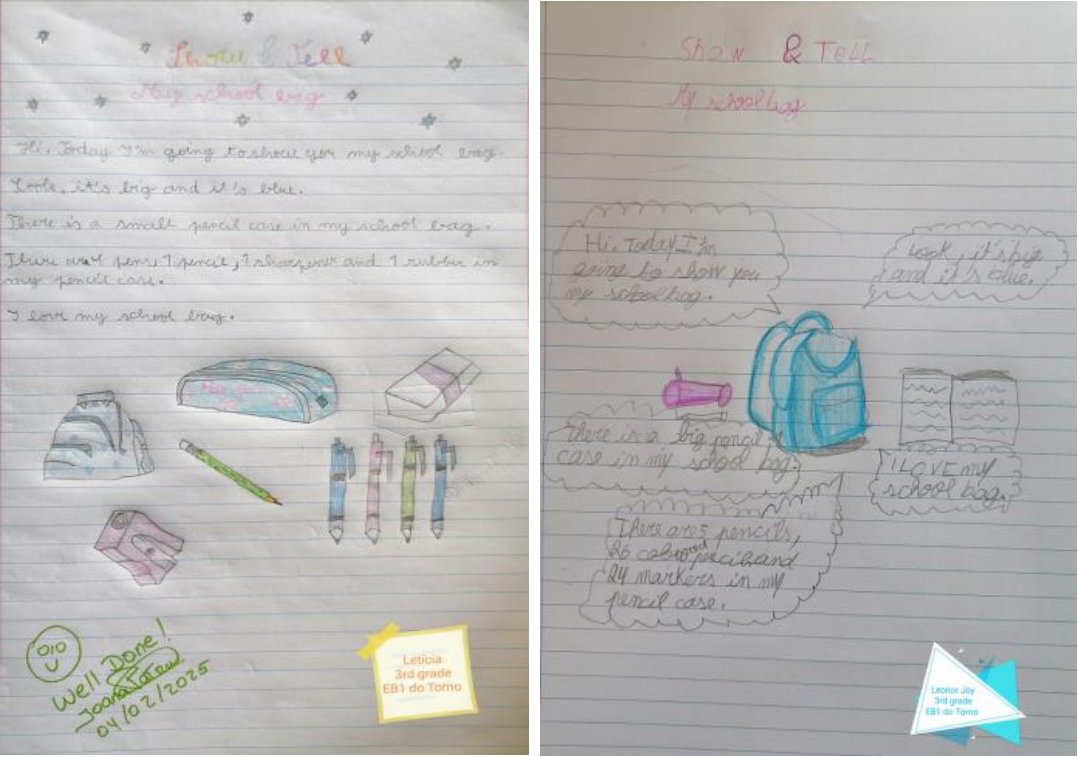 Show & Tell
My school bag
Hi. Today I'm going to show you my school bag.
Look, it's big and it's blue.
There is a small pencil case in my school bag.
There are 4 pens, 1 pencil, 1 sharpener and 1 rubber in
my pencil case.
I love my school bag.
Well Done!
04/02/2025
Letícia
3rd grade
EB1 do Torno
Show & Tell
My schoolbag
Hi. Today I'm
going to show you
my schoolbag.
Look, it's big
and it's blue.
There is a big pencil
case in my school bag.
I LOVE my
school bag.
There are 5 pencils,
26 coloured pencils and
24 markers in my
pencil case.
Leonor Joy
3rd grade
EB1 do Torno